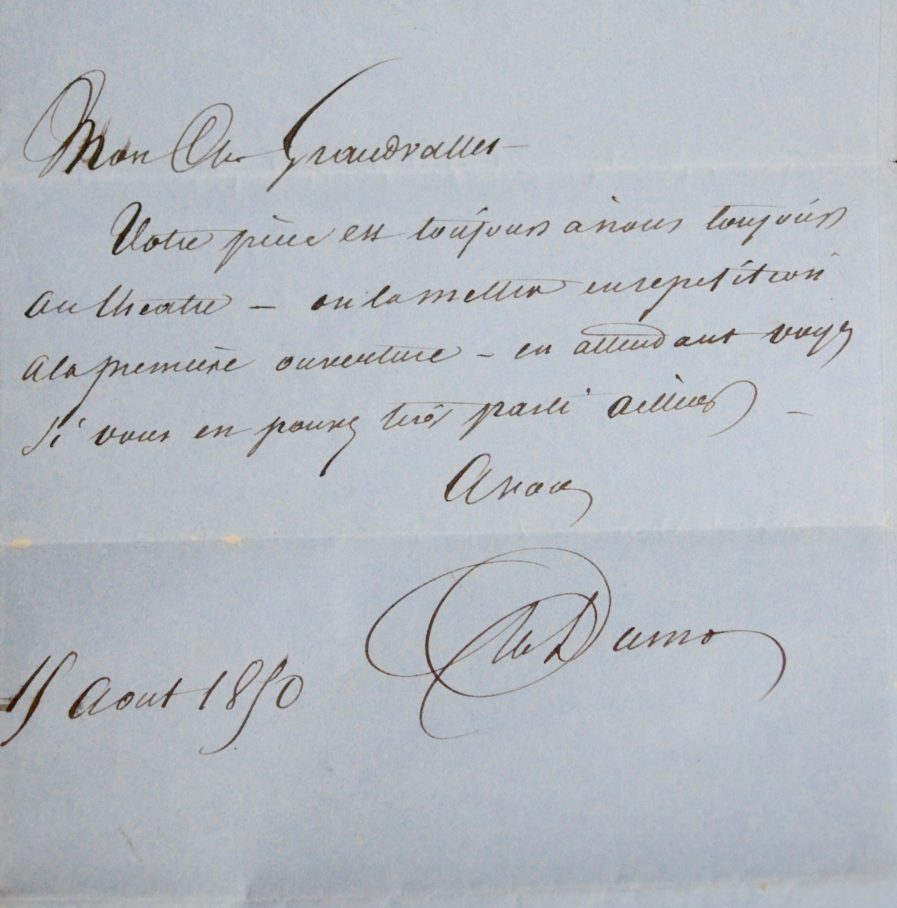 Mon Cher Grandvallet
Votre pièce est toujours à nous toujours
au theatre – on la mettra en repetition
a la premiere ouverture – en attendant voyez
si vous en pouvez tirer parti ailleurs –
A vous
Alex Dumas
15 Aout 1850